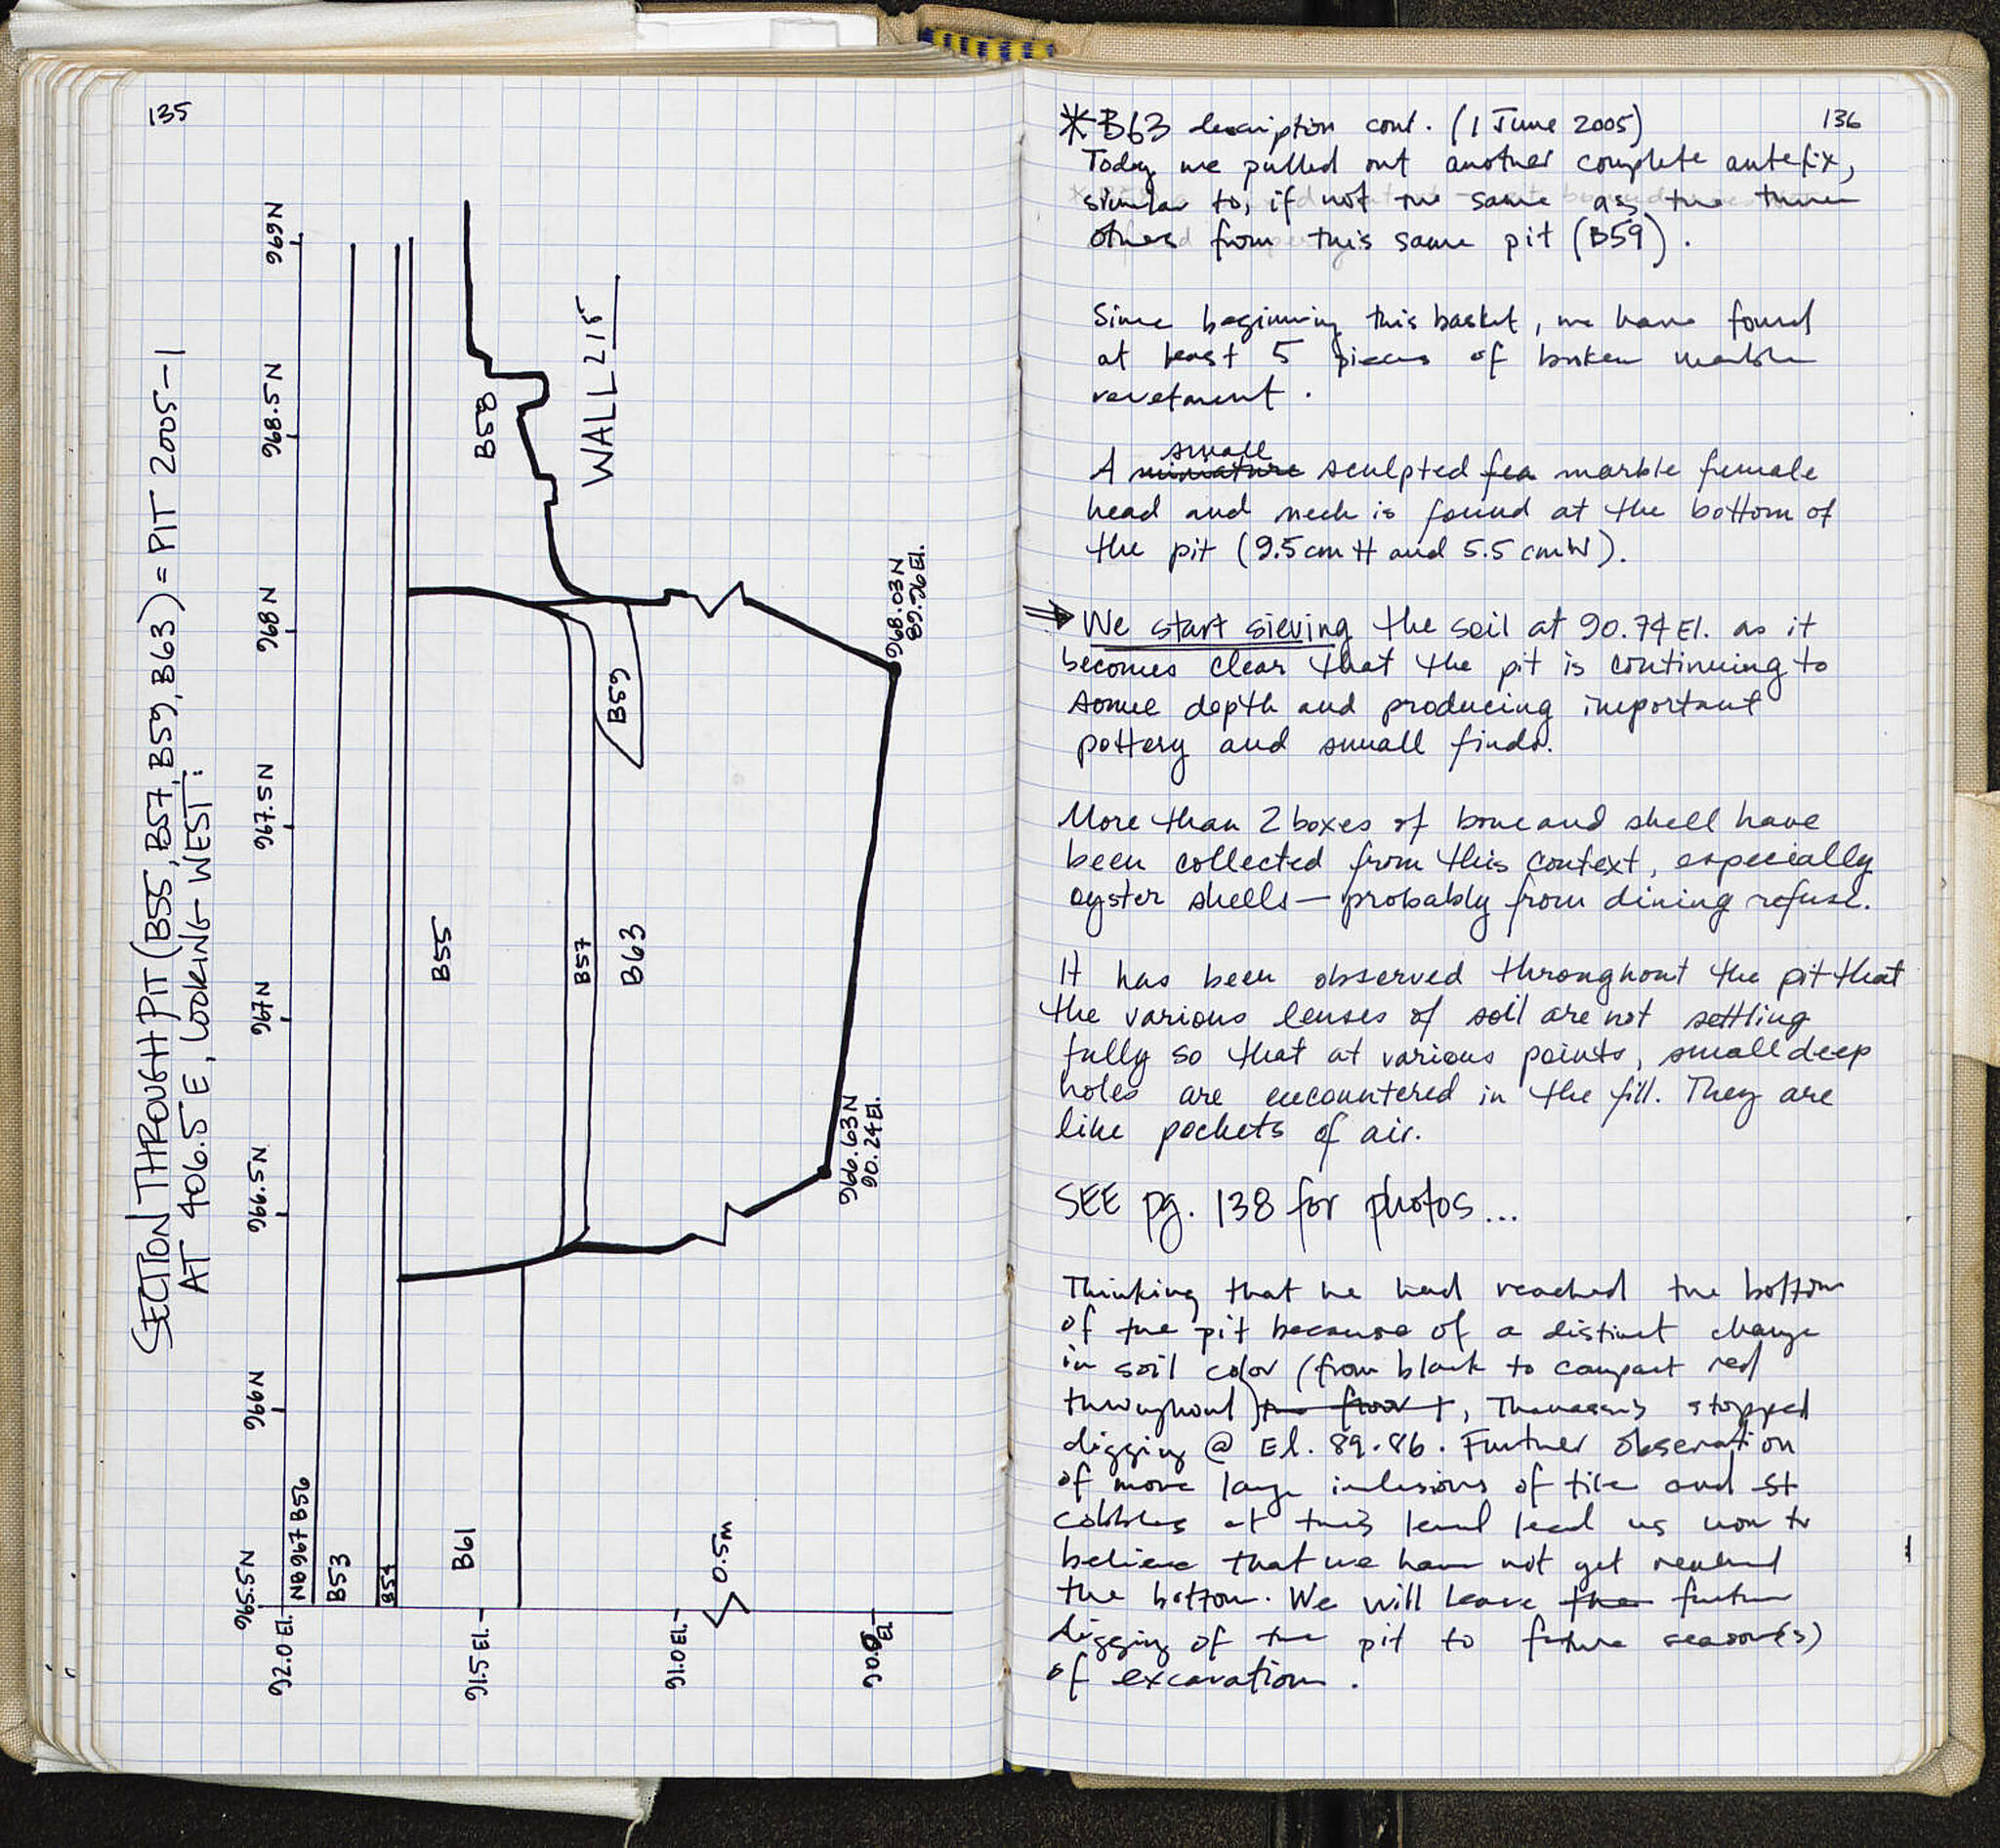 135
SECTION THROUGH PIT (B55, B57, B59, B63) = PIT 2005-1
AT 406.5 E, LOOKING WEST:
965.5N
966N
966.5N
967N
967.5N
968N
968.5N
969N
92.0 El.
91.5 El.
91.0 El.
90.0 El.
0.5m
NB967 B56
B53
B54
B61
B55
B57
B63
B59
B58
WALL 215
966.63N
90.24 El.
968.03N
136
*B63 description cont. (1 June 2005)
Today we pulled out another complete antefix,
similar to, if not the same as the three
others from this same pit (B59).
Since beginning this basket, we have found
at least 5 pieces of broken marble
revetment.
small
A miniature sculpted fea marble female
head and neck is found at the bottom of
the pit (9.5cm H and 5.5 cm W).
⇒ We start sieving the soil at 90.74 El. as it
becomes clear that the pit is continuing to
some depth and producing important
pottery and small finds.
More than 2 boxes of bone and shell have
been collected from this context, especially
oyster shells — probably from dining refuse.
It has been observed throughout the pit that
the various lenses of soil are not settling
fully so that at various points, small deep
holes are encountered in the fill. They are
like pockets of air.
SEE pg. 138 for photos...
Thinking that he had reached the bottom
of the pit because of a distinct change
in soil color (from black to compact red
throughout) the floor, Thanassis stopped
digging @ El. 89.86. Further observation
of more large inclusions of tile and st
cobbles at this level lead us now to
believe that we have not yet reached
the bottom. We will leave the further
digging of the pit to future season(s)
of excavation.